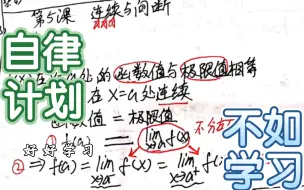 第5课 连续与间断
自律
计划
在x=a处的函数值与极限值相等
在x=a处连续
函数值 = 极限值
① f(a) = lim f(x)
x→a
不分左
好好学习
不如
学习
② ⇒ f(a) = lim f(x) = lim f(
x→a⁺ x→a⁻